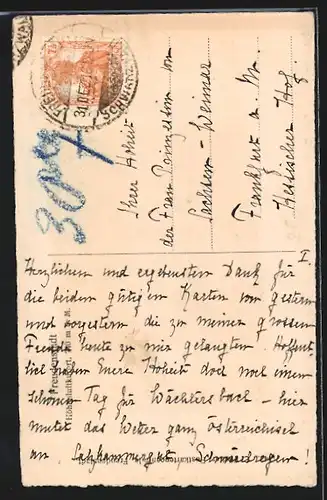 Ihrer Hoheit
der Frau Prinzessin von
Sachsen-Weimar
Frankfurt a. M.
Hessischer Hof.
30 Pfg
I.
Herzlichen und ergebensten Dank für
die beiden gütigen Karten von gestern
und vorgestern die zu meiner grossen
Freude heute zu mir gelangten. Hoffent-
lich haben Euere Hoheit doch noch einen
schönen Tag für Wächtersbach – hier
mutet das Wetter ganz österreichisch
an Salzkammergut Schnürlregen!
Freudenstadt
Höhenluftkurort, 740 m ü. M.